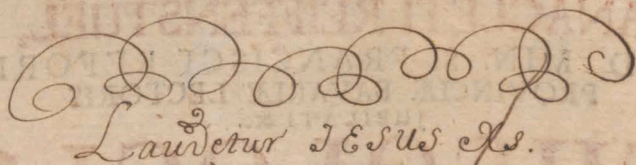 Laudetur JESUS Xs.